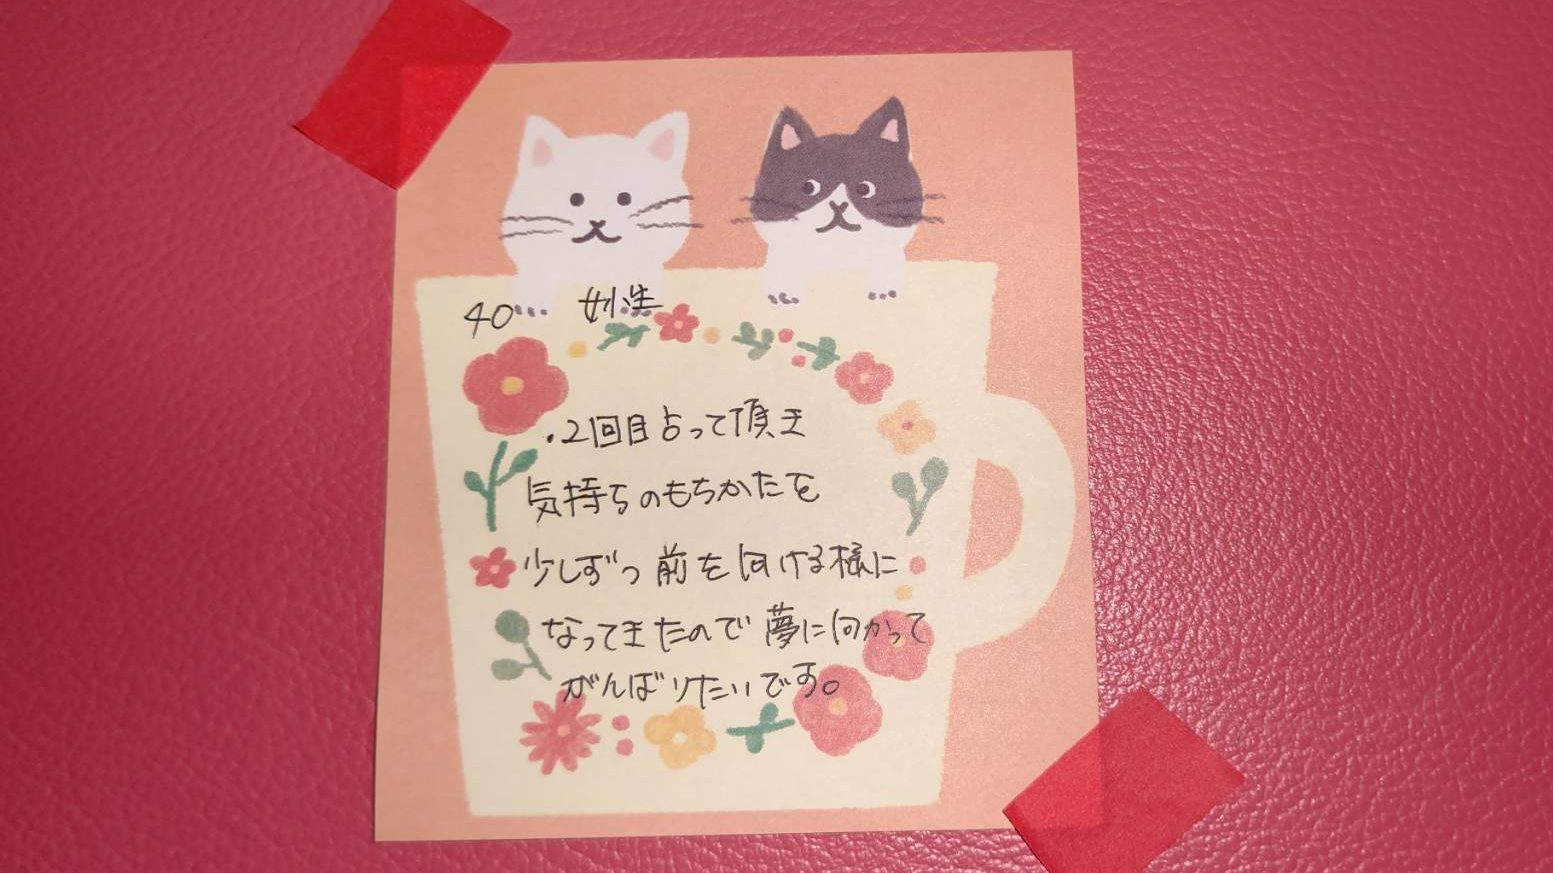 40 女性
・2回目占って頂き
気持ちのもちかたを
少しずつ前を向ける様に
なってきたので夢に向かって
がんばりたいです。